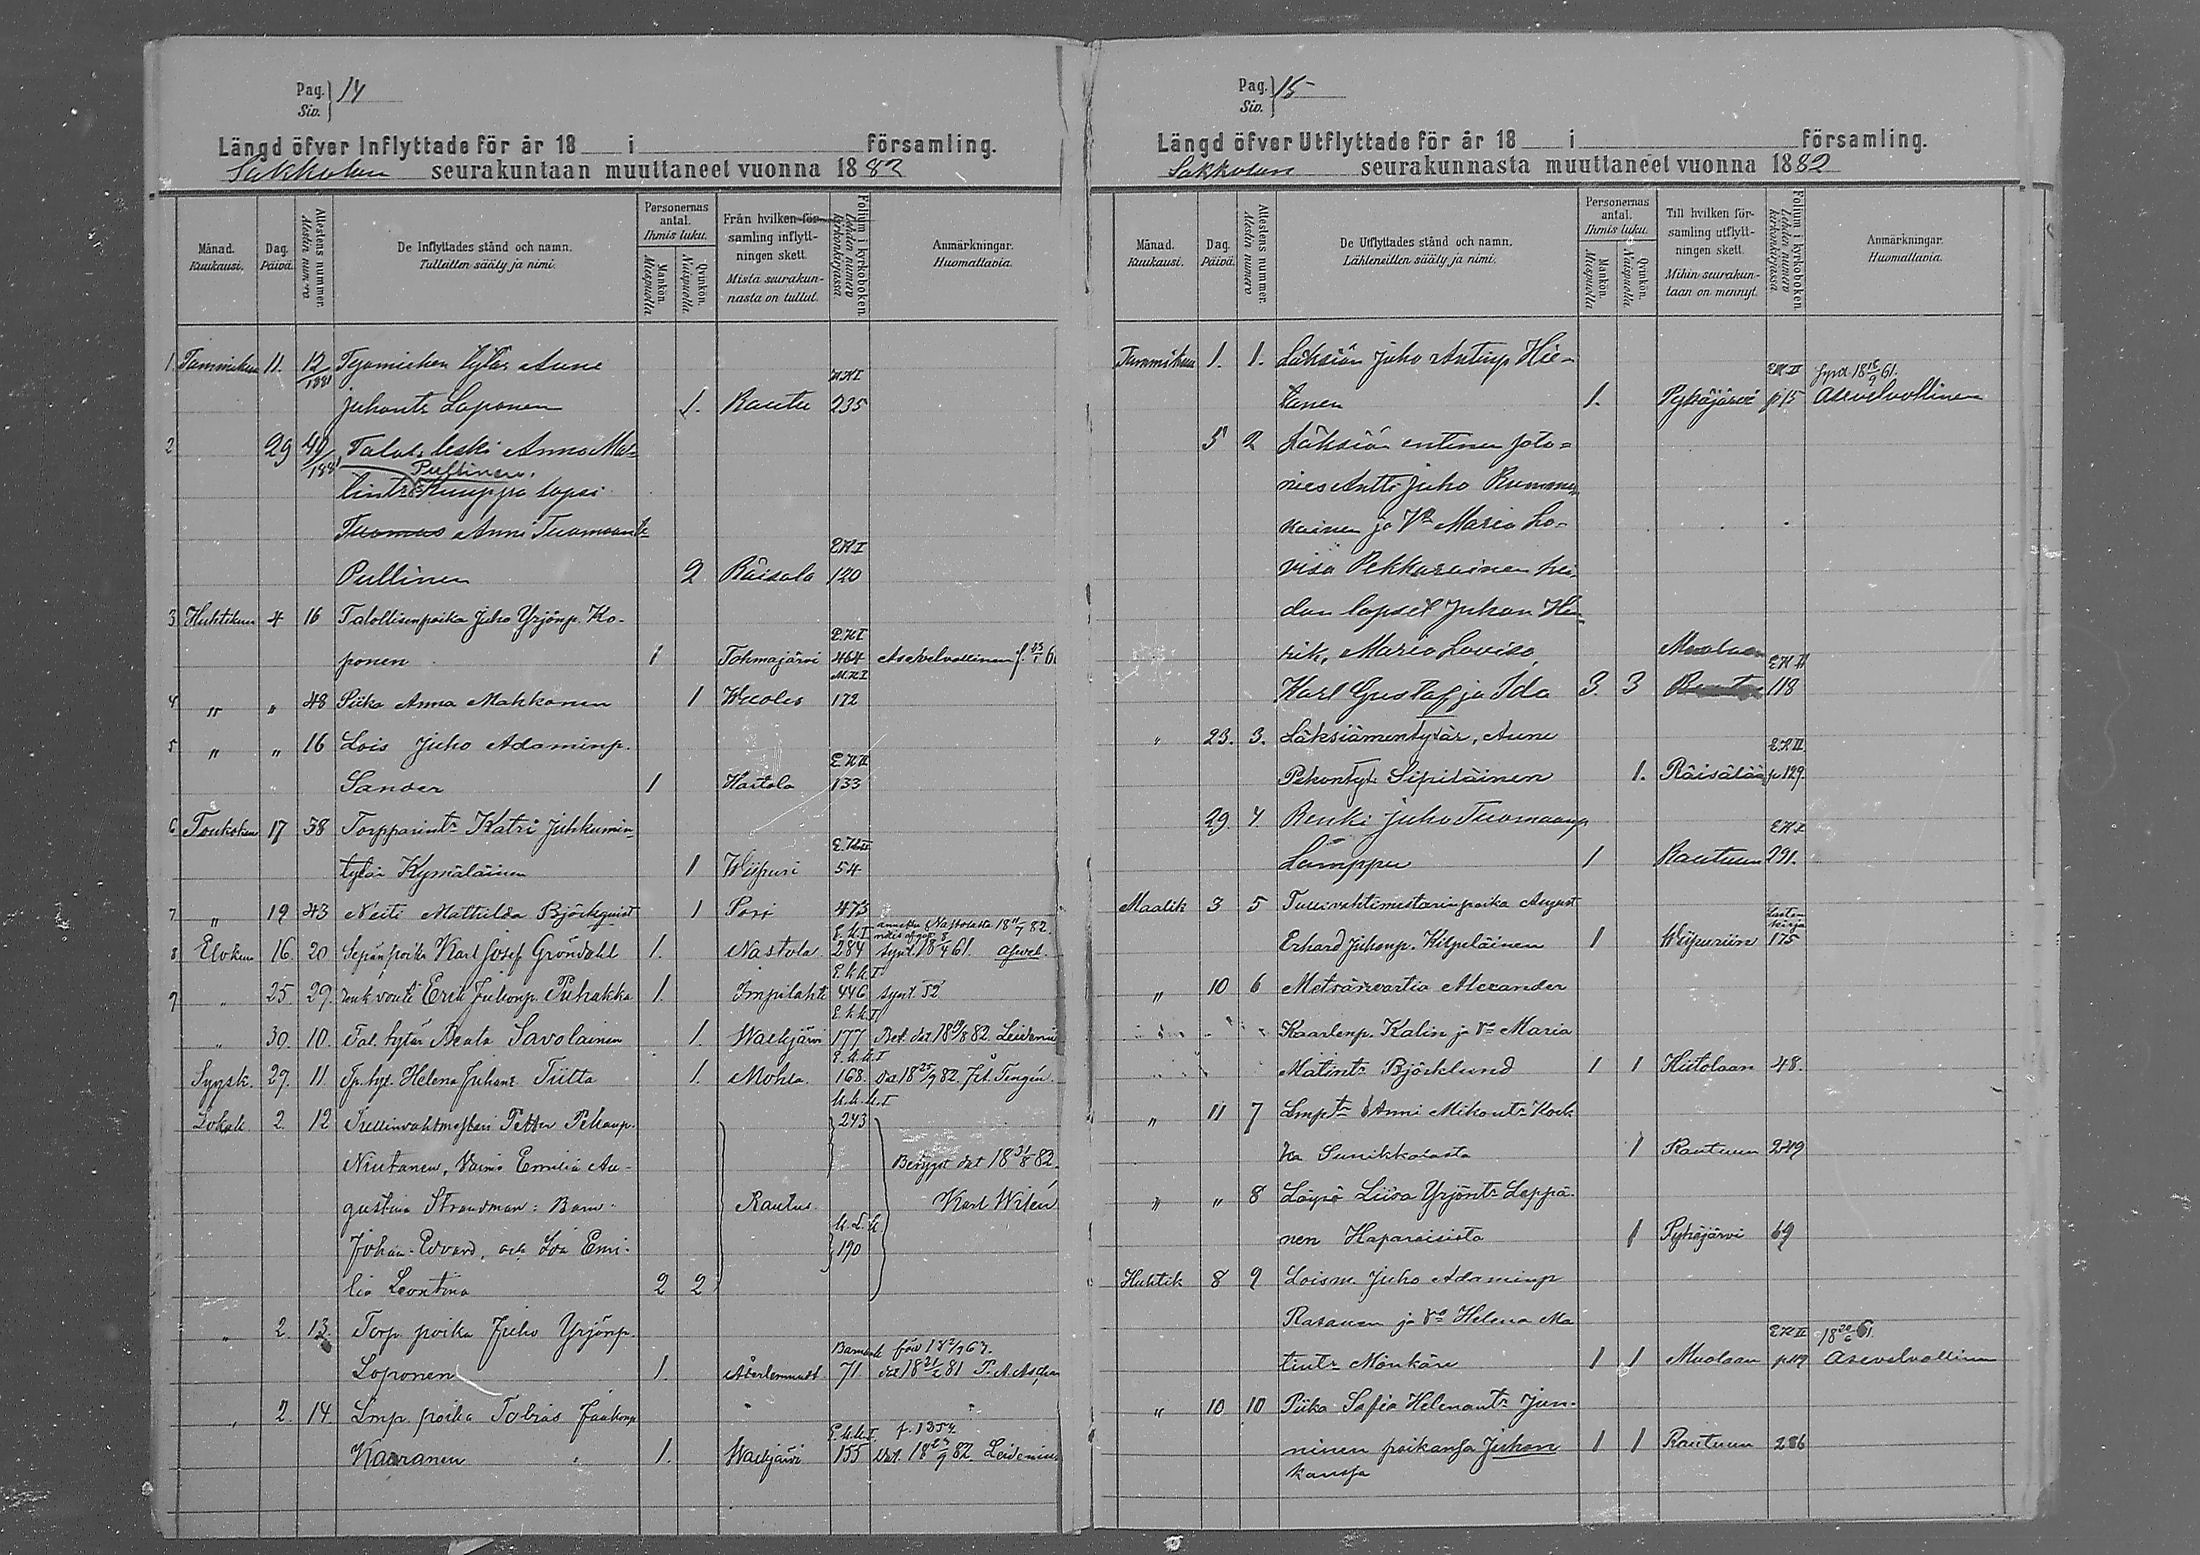 Pag. Siv. 14
Längd öfver Inflyttade för år 18 i församling.
Sakkolan seurakuntaan muuttaneet vuonna 1882
Månad. Kuukausi.
Dag. Päivä.
Attestens nummer. Alestin numero
De Inflyttades stånd och namn.
Tulleitten sääty ja nimi.
Personernas antal. Ihmis luku.
Mankön. Miespuolia
Qvinkön. Naispuolia
Från hvilken församling inflyttningen skett.
Mistä seurakunnasta on tullut.
Folium i kyrkoboken. Lehden numero kirkonkirjassa
Anmärkningar. Huomattavia.
1. Tammikuu 11. 12/1881 Työmiehen tytär Anne
Juhontr Loponen 1. Rautu 235
2 29 49/1881 Talol. leski Anna Ma-
Pullinen
tintr Kumppa lapsi
Tuomas Anni Tuomaantr
R.K.I
Pullinen 2 Räisälä 120
3 Huhtikuu 4 16 Talollisenpoika Juho Yrjönp. Ko-
R.K.I
ponen 1 Tohmajärvi 464 Asevelvollinen
4 " " 48 Piika Anna Makkonen 1 Wuoles 172
5 " " 16 Lois Juho Adaminp.
R.K.II
Sander 1 Hartola 133
6 Toukokuu 17 58 Torpparintr Katri Juhkumin
tytär Kymäläinen 1 Wiipuri 54
7 " 19 43 Neiti Mathilda Björkqvist 1 Pori 473
8 Elokuu 16. 20 Sepänpoika Karl Josef Gröndahl 1. Nastola 284 synt. 18 61. asevel.
9 " 25 29. Erik Juhonp. Puhakka 1. Impilahti 446 synt. 52
" 30. 10. Tal. tytär Beata Savolainen 1. Walkjärvi 177 Bet. dat 18 82. Leidenius
Syysk. 27. 11. Tp. tyt. Helena Juhant. Tiitta 1. Mohla 168. dat 18 82. Tengén.
Lokak 2. 12 Tullinvahtmestari Petter Pekanp. 243
Niutanen, Vaimo Emilia Au- Betygat dat 18 31/8 82.
gustina Strandman: Barn: Rautus. Karl Wilén
Johan Edvard, och Ida Emi- 190
lia Leontina 2 2
" 2. 13. Torp. poika Juho Yrjönp.
Loponen 1. 71. dat 18 81
" 2. 14. Lmp. poika Tobias Jaakonp.
Kaaranen 1. Walkjärvi 155 dat. 18 82 Leidenius
Pag. Siv. 15
Längd öfver Utflyttade för år 18 i församling.
Sakkolan seurakunnasta muuttaneet vuonna 1882
Månad. Kuukausi.
Dag. Päivä.
Attestens nummer. Alestin numero
De Utflyttades stånd och namn.
Lähteneitten sääty ja nimi.
Personernas antal. Ihmis luku.
Mankön. Miespuolia
Qvinkön. Naispuolia
Till hvilken församling utflyttningen skett.
Mihin seurakuntaan on mennyt.
Folium i kyrkoboken. Lehden numero kirkonkirjassa
Anmärkningar. Huomattavia.
Tammikuu 1. 1. Läksiän Juho Antinp Hie-
tanen 1. Pyhäjärvi p15 Asevelvollinen
5 2 Läksiän entinen talo-
nies Antti Juho Rumme
kainen ja Vo Maria Lo-
visa Pekkarainen hei-
dän lapset Juhan Hen-
rik, Maria Lovisa, Muolaan
Karl Gustaf ja Ida 3. 3 Rautu 118
" 23. 3. Läksiämentytär, Anne
Pekontyt Sipiläinen 1. Räisälään p129.
29. 4. Renki Juho Tuomaanp
Lamppu 1 Rautuun 291.
Maalik 3 5 Tullivahtimestarinpoika August
Erhard Juhonp. Kilpeläinen 1 Wiipuriin 175
" 10 6 Metsänvartia Alexander
Kaarlenp. Kalin ja Vo Maria
Matintr Björklund 1 1 Hiitolaan 48.
" 11 7 Lmptr Anni Mikontr Kork
ka Sunikkalasta 1 Rautuun 249
" " 8 Löysä Liisa Yrjöntr Leppä-
nen Haparaisista 1 Pyhäjärvi 69
Huhtik 8 9 Loism Juho Adaminp
Rasanen ja Vo Helena Ma
tintr Mönkäre 1 1 Muolaan p119 Asevelvollinen
" 10 10 Piika Sofia Helenantr Jun-
ninen poikansa Juhon 1 1 Rautuun 286
kanssa